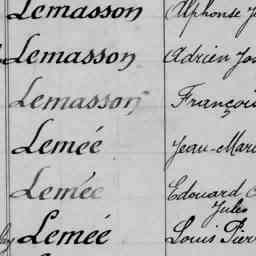 Lemasson Alphonse
Lemasson Adrien
Lemasson
Lemée Jean-Mari
Lemée Edouard
Jules
Lemée Louis Pier